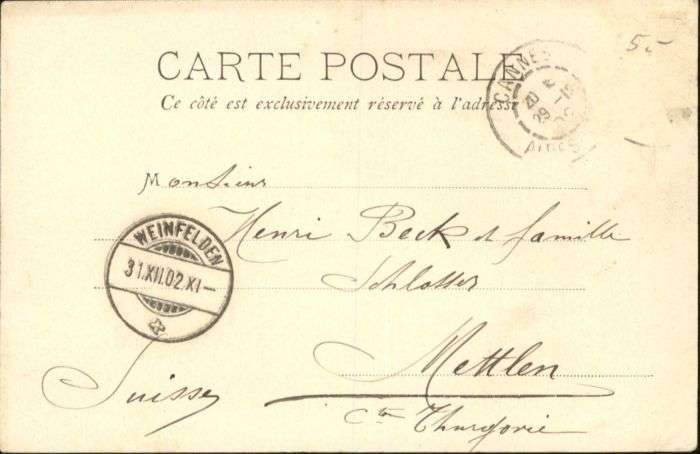 5.-
CARTE POSTALE
Ce côté est exclusivement réservé à l'adresse
CANNES
20
29
Monsieur
Henri Beck et famille
Schlosser
Mettlen
Cton Thurgovie
Suisse
WEINFELDEN
31.XII.02.XI-